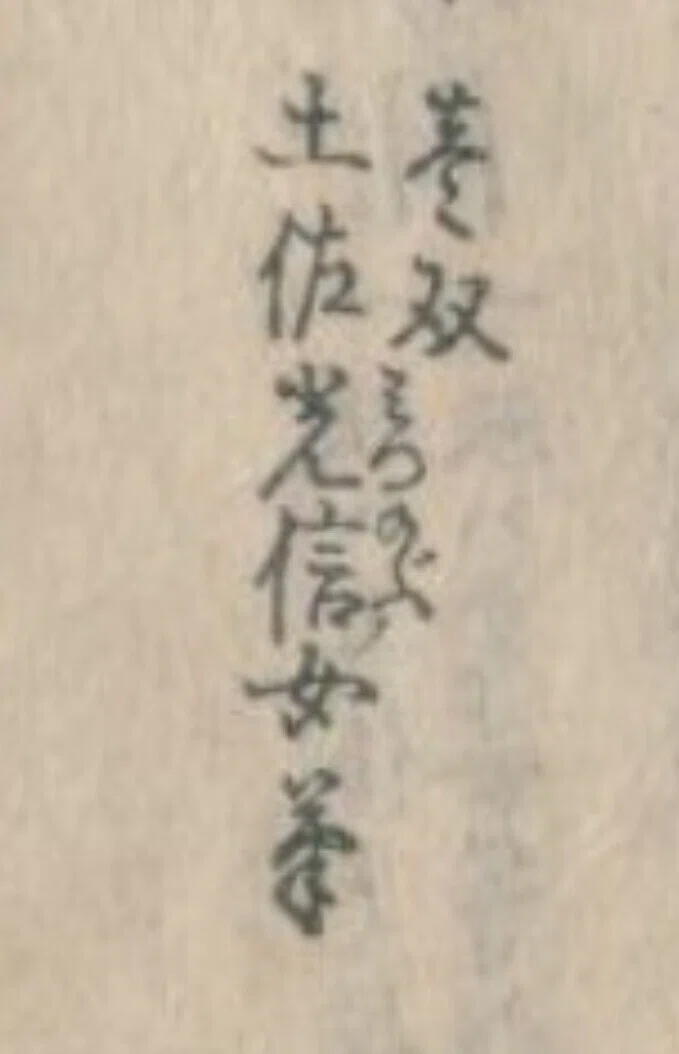 双
みつのぶ
土佐光信女筆